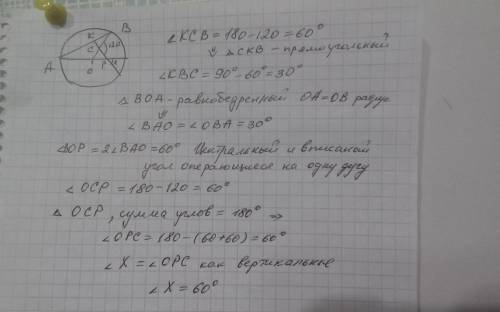 К В
С 120
А Р х
О
∠KCB = 180 - 120 = 60°
⇓ △CKB - прямоугольный
∠KBC = 90° - 60° = 30°
△ BOA - равнобедренный OA=OB радиус
⇓
∠BAO = ∠OBA = 30°
∠BOP = 2∠BAO = 60° Центральный и вписаный
угол операющиеся на одну дугу
∠ OCP = 180 - 120 = 60°
△ OCP, сумма углов = 180° ⇒
∠OPC = 180 - (60+60) = 60°
∠ X = ∠OPC как вертикальные
∠ X = 60°